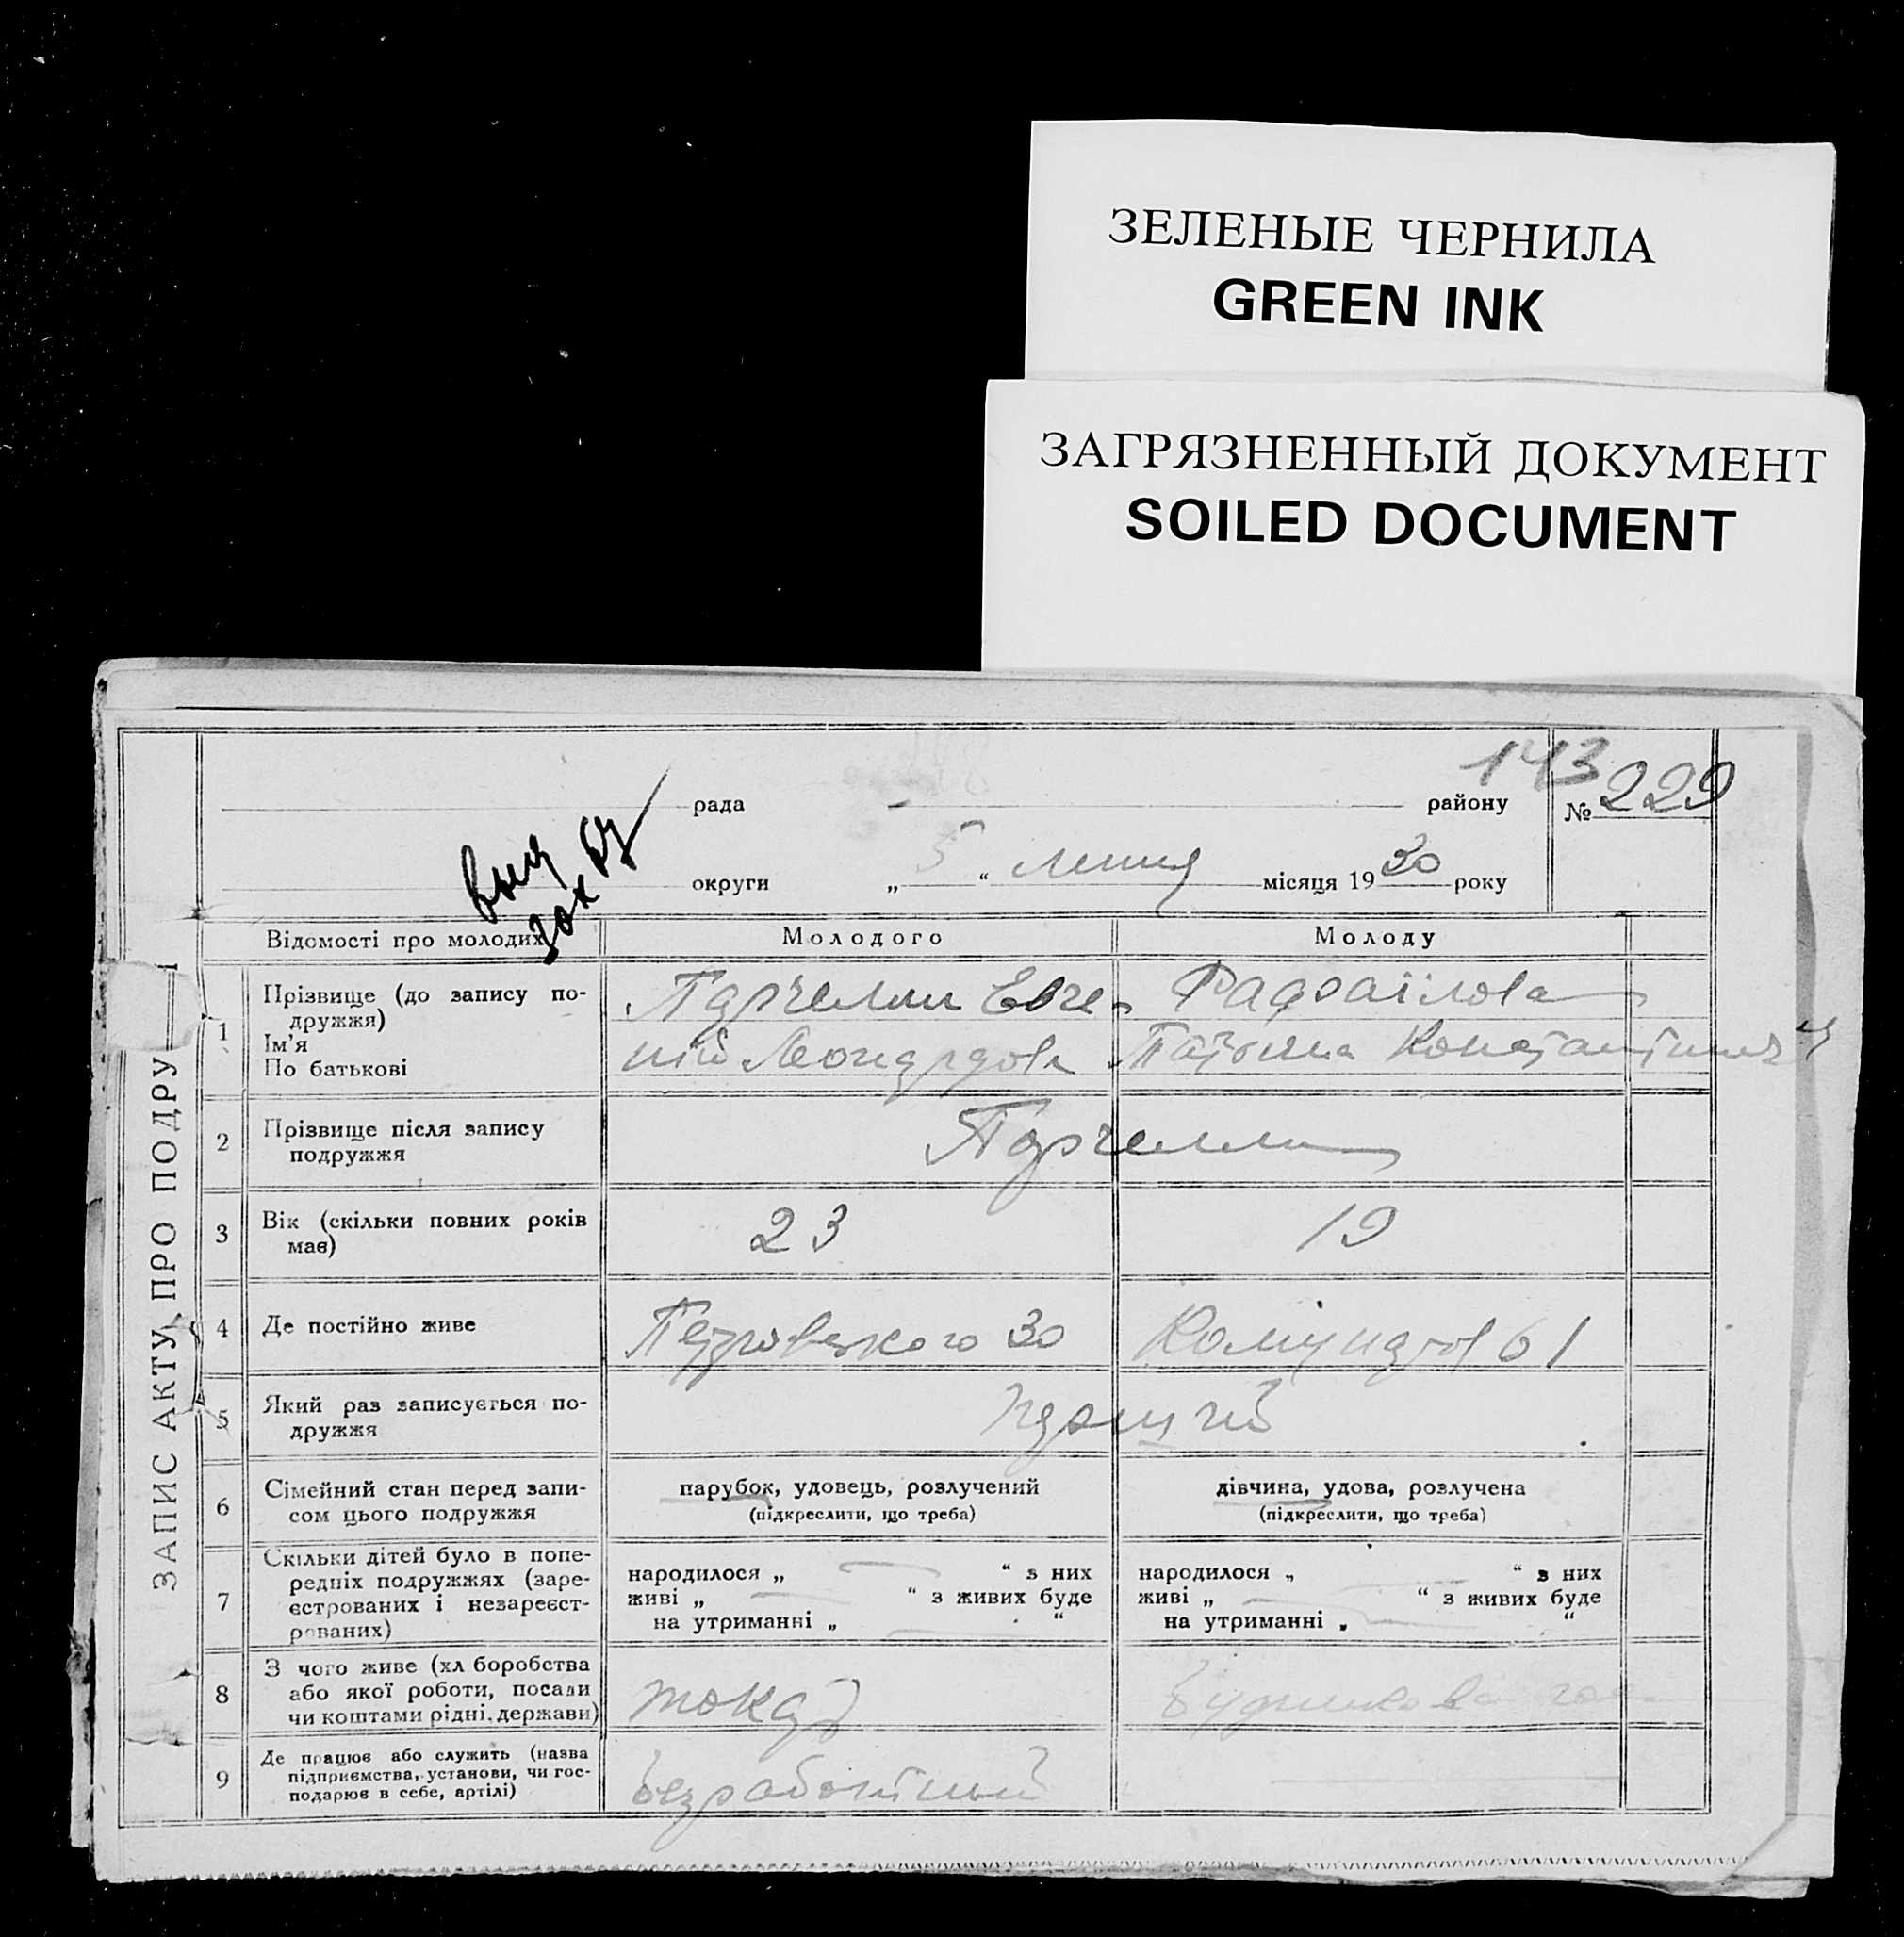 ЗЕЛЕНЫЕ ЧЕРНИЛА
GREEN INK
ЗАГРЯЗНЕННЫЙ ДОКУМЕНТ
SOILED DOCUMENT
ЗАПИС АКТУ ПРО ПОДРУ
143
рада району № 229
округи „ 5 “ липня місяця 1930 року
Відомості про молодих Молодого Молоду
1 Прізвище (до запису по-
дружжя)
Ім'я
По батькові
Парчелли Евге Рафаілова
ній Леонардов Татьяна
2 Прізвище після запису
подружжя
Парчелли
3 Вік (скільки повних років
має)
23 19
4 Де постійно живе Петровського 30 Комунаров 61
5 Який раз записується по-
дружжя
перший
6 Сімейний стан перед запи-
сом цього подружжя
парубок, удовець, розлучений
(підкреслити, що треба)
дівчина, удова, розлучена
(підкреслити, що треба)
7 Скільки дітей було в попе-
редніх подружжях (заре-
єстрованих і незареєст-
рованих)
народилося „ “ з них
живі „ “ з живих буде
на утриманні „ “
народилося „ “ з них
живі „ “ з живих буде
на утриманні „ “
8 З чого живе (хл боробства
або якої роботи, посади
чи коштами рідні, держави)
токар
9 Де працює або служить (назва
підприємства, установи, чи гос-
подарює в себе, артілі)
безработний